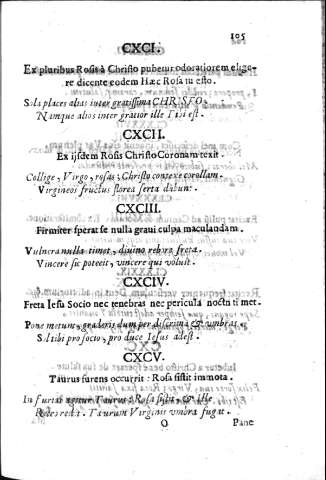 105
CXCI.
Ex pluribus Rosis à Christo pubetur odoratiorem elige-
re dicente eodem Hæc Rosa tu esto.
Sola places alias inter gratissima CHRISTO
Namque alios inter gratior ille Tibi est.
CXCII.
Ex ijsdem Rosis Christo Coronam texit.
Collige, Virgo, rosas; Christo contexe corollam.
Virgineos fructus florea serta dabunt.
CXCIII.
Firmiter sperat se nulla graui culpa maculandam.
Vulnera nulla timet, diuino robore freta.
Vincere sic poteeit, vincere qui voluit.
CXCIV.
Freta Iesu Socio nec tenebras nec pericula noctu ti met.
Pone metum, gradoris dum per discrima & vmbras,
Si tibi pro socio, pro duce Iesus adest.
CXCV.
Taurus furens occurrit: Rosa sistit immota.
In furias agitur Taurus: Rosa sistit, & ille
redit. Taurum Virginis vmbra fugat.
O
Pane